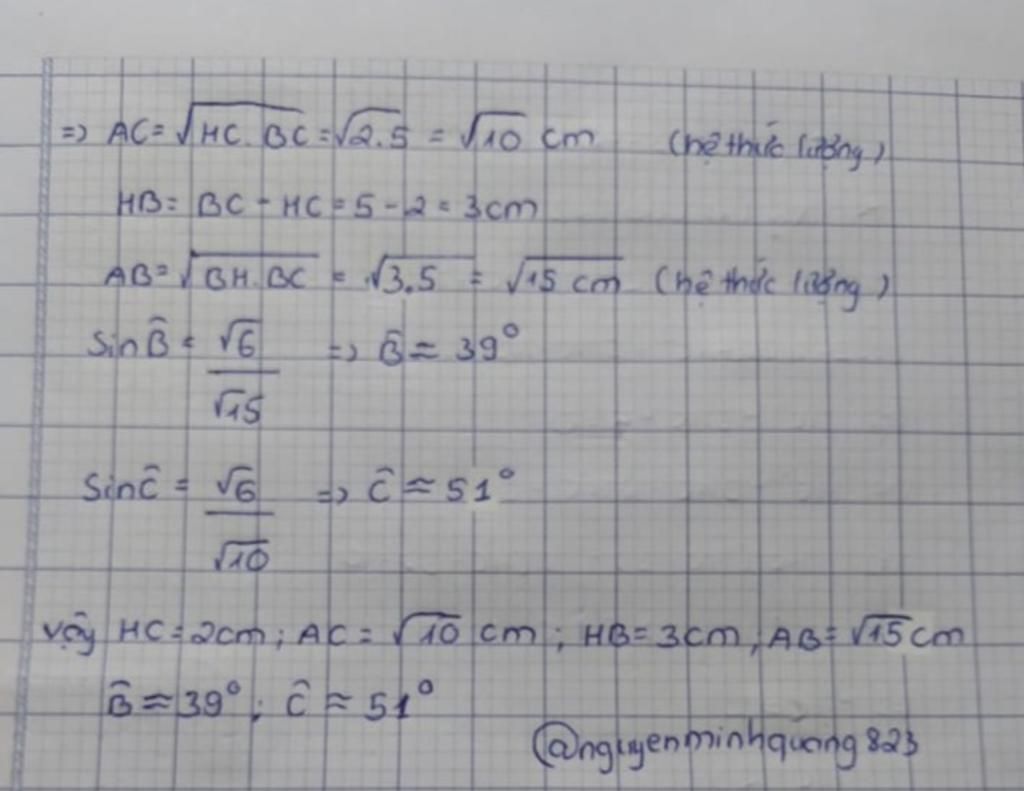 => AC = √HC.BC = √2.5 = √10 cm (hệ thức lượng)
HB = BC - HC = 5 - 2 = 3cm
AB = √BH.BC = √3.5 = √15 cm (hệ thức lượng)
Sin B̂ = √6/√15 => B̂ ≈ 39°
Sin Ĉ = √6/√10 => Ĉ ≈ 51°
Vậy HC = 2cm; AC = √10 cm; HB = 3cm, AB = √15 cm
B̂ ≈ 39°; Ĉ ≈ 51°
@nguyenminhquang823